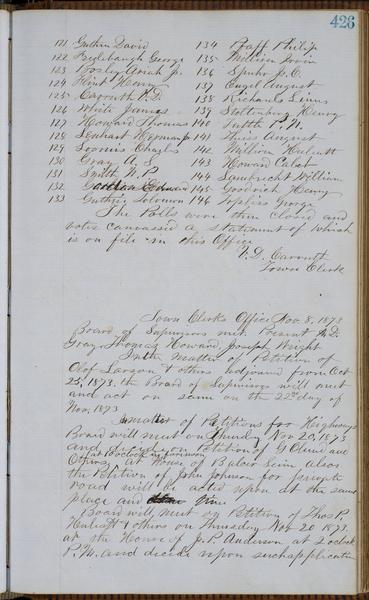 426
121 Guthrie David 134 Pfaff Philip
122 George 135 William Irvin
123 Bosly Amah J. 136 Spuhr J.C.
124 Flint Henry 137 Engel August
125 Carruth V.D. 138 Richards Linus
126 White James 139 Stoltenberg Henry
127 Howard Thomas 140
128 Herman J. 141 Theis August
129 Loomis Chas 142 Hulcutt
130 Gray A S 143 Howard Calet
131 Smith W.P. 144 Lambrecht William
132 Edward 145 Goodrich Henry
133 Guthrie Solomon 146 Hopkins George
The Polls were then closed and
votes canvassed a statement of which
is on file in this Office
V.D. Carruth
Town Clerk
Town Clerks Office Nov. 8, 1873
Board of Supervisors met Present A.D.
Gray Thomas Howard, Joseph Wright
In the matter of Petition of
Olof Larson & others adjourned from Oct
25, 1873. the Board of Supervisors will meet
and act on same on the 22nd day of
Nov, 1873
In matter of Petitions for Highways
Board will meet on Thursday Nov 20, 1873
at 10 o'clock
and decide upon Petition of G Olene and
Others, at House of also
the Petition of John Johnson for private
road will be acted upon at the same
place and time
Board will meet on Petition of Thos P.
Hulcutt & others on Thursday Nov 20 1873.
at the House of J.P. Anderson at 2 oclock
P.M. and decide upon such application